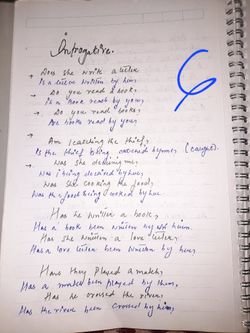 Introgative.
→ Does she write a letter
Is a letter written by him,
→ Do you read a book,
Is a book read by you,
→ Do you read books,
Are books read by you,
→ Am I catching the thief,
Is the thief being by me, (caught).
→ Was she desiring me,
Was I being desired by her,
Was she cooking the food,
Was the food being cooked by her
Has he written a book,
Has a book been written by him.
Has she written a love letter,
Has a love letter been written by her,
Have they played a match,
Has a match been played by them,
Has he crossed the river
Has the river been crossed by him,